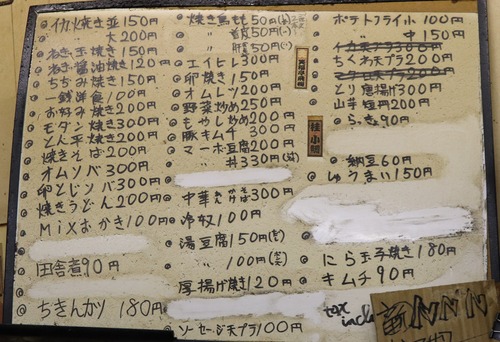 イカ焼き並150円
大200円
ねぎ玉焼き150円
ねぎ醤油焼き120円
ちぢみ焼き150円
一銭洋食100円
お好み焼き200円
モダン焼き300円
とん平焼き200円
焼きそば200円
オムソバ300円
卵とじソバ300円
焼うどん200円
Mixおかき100円
田舎煮90円
ちきんカツ 180円
焼き鳥もも50円
首皮50円
肝50円
エイヒレ300円
卵焼き150円
オムレツ200円
野菜炒め250円
もやし炒め200円
豚キムチ300円
マーボ豆腐200円
〃 丼330円
中華そば300円
冷奴100円
湯豆腐150円
〃 100円
厚揚げ焼き120円
ソーセージ天プラ100円
ポテトフライ小100円
〃 中150円
イカ天プラ300円
ちくわ天プラ200円
とり唐揚げ300円
山芋短冊200円
らっきょ90円
納豆60円
しゅうまい150円
にら玉子焼き180円
キムチ90円
tax